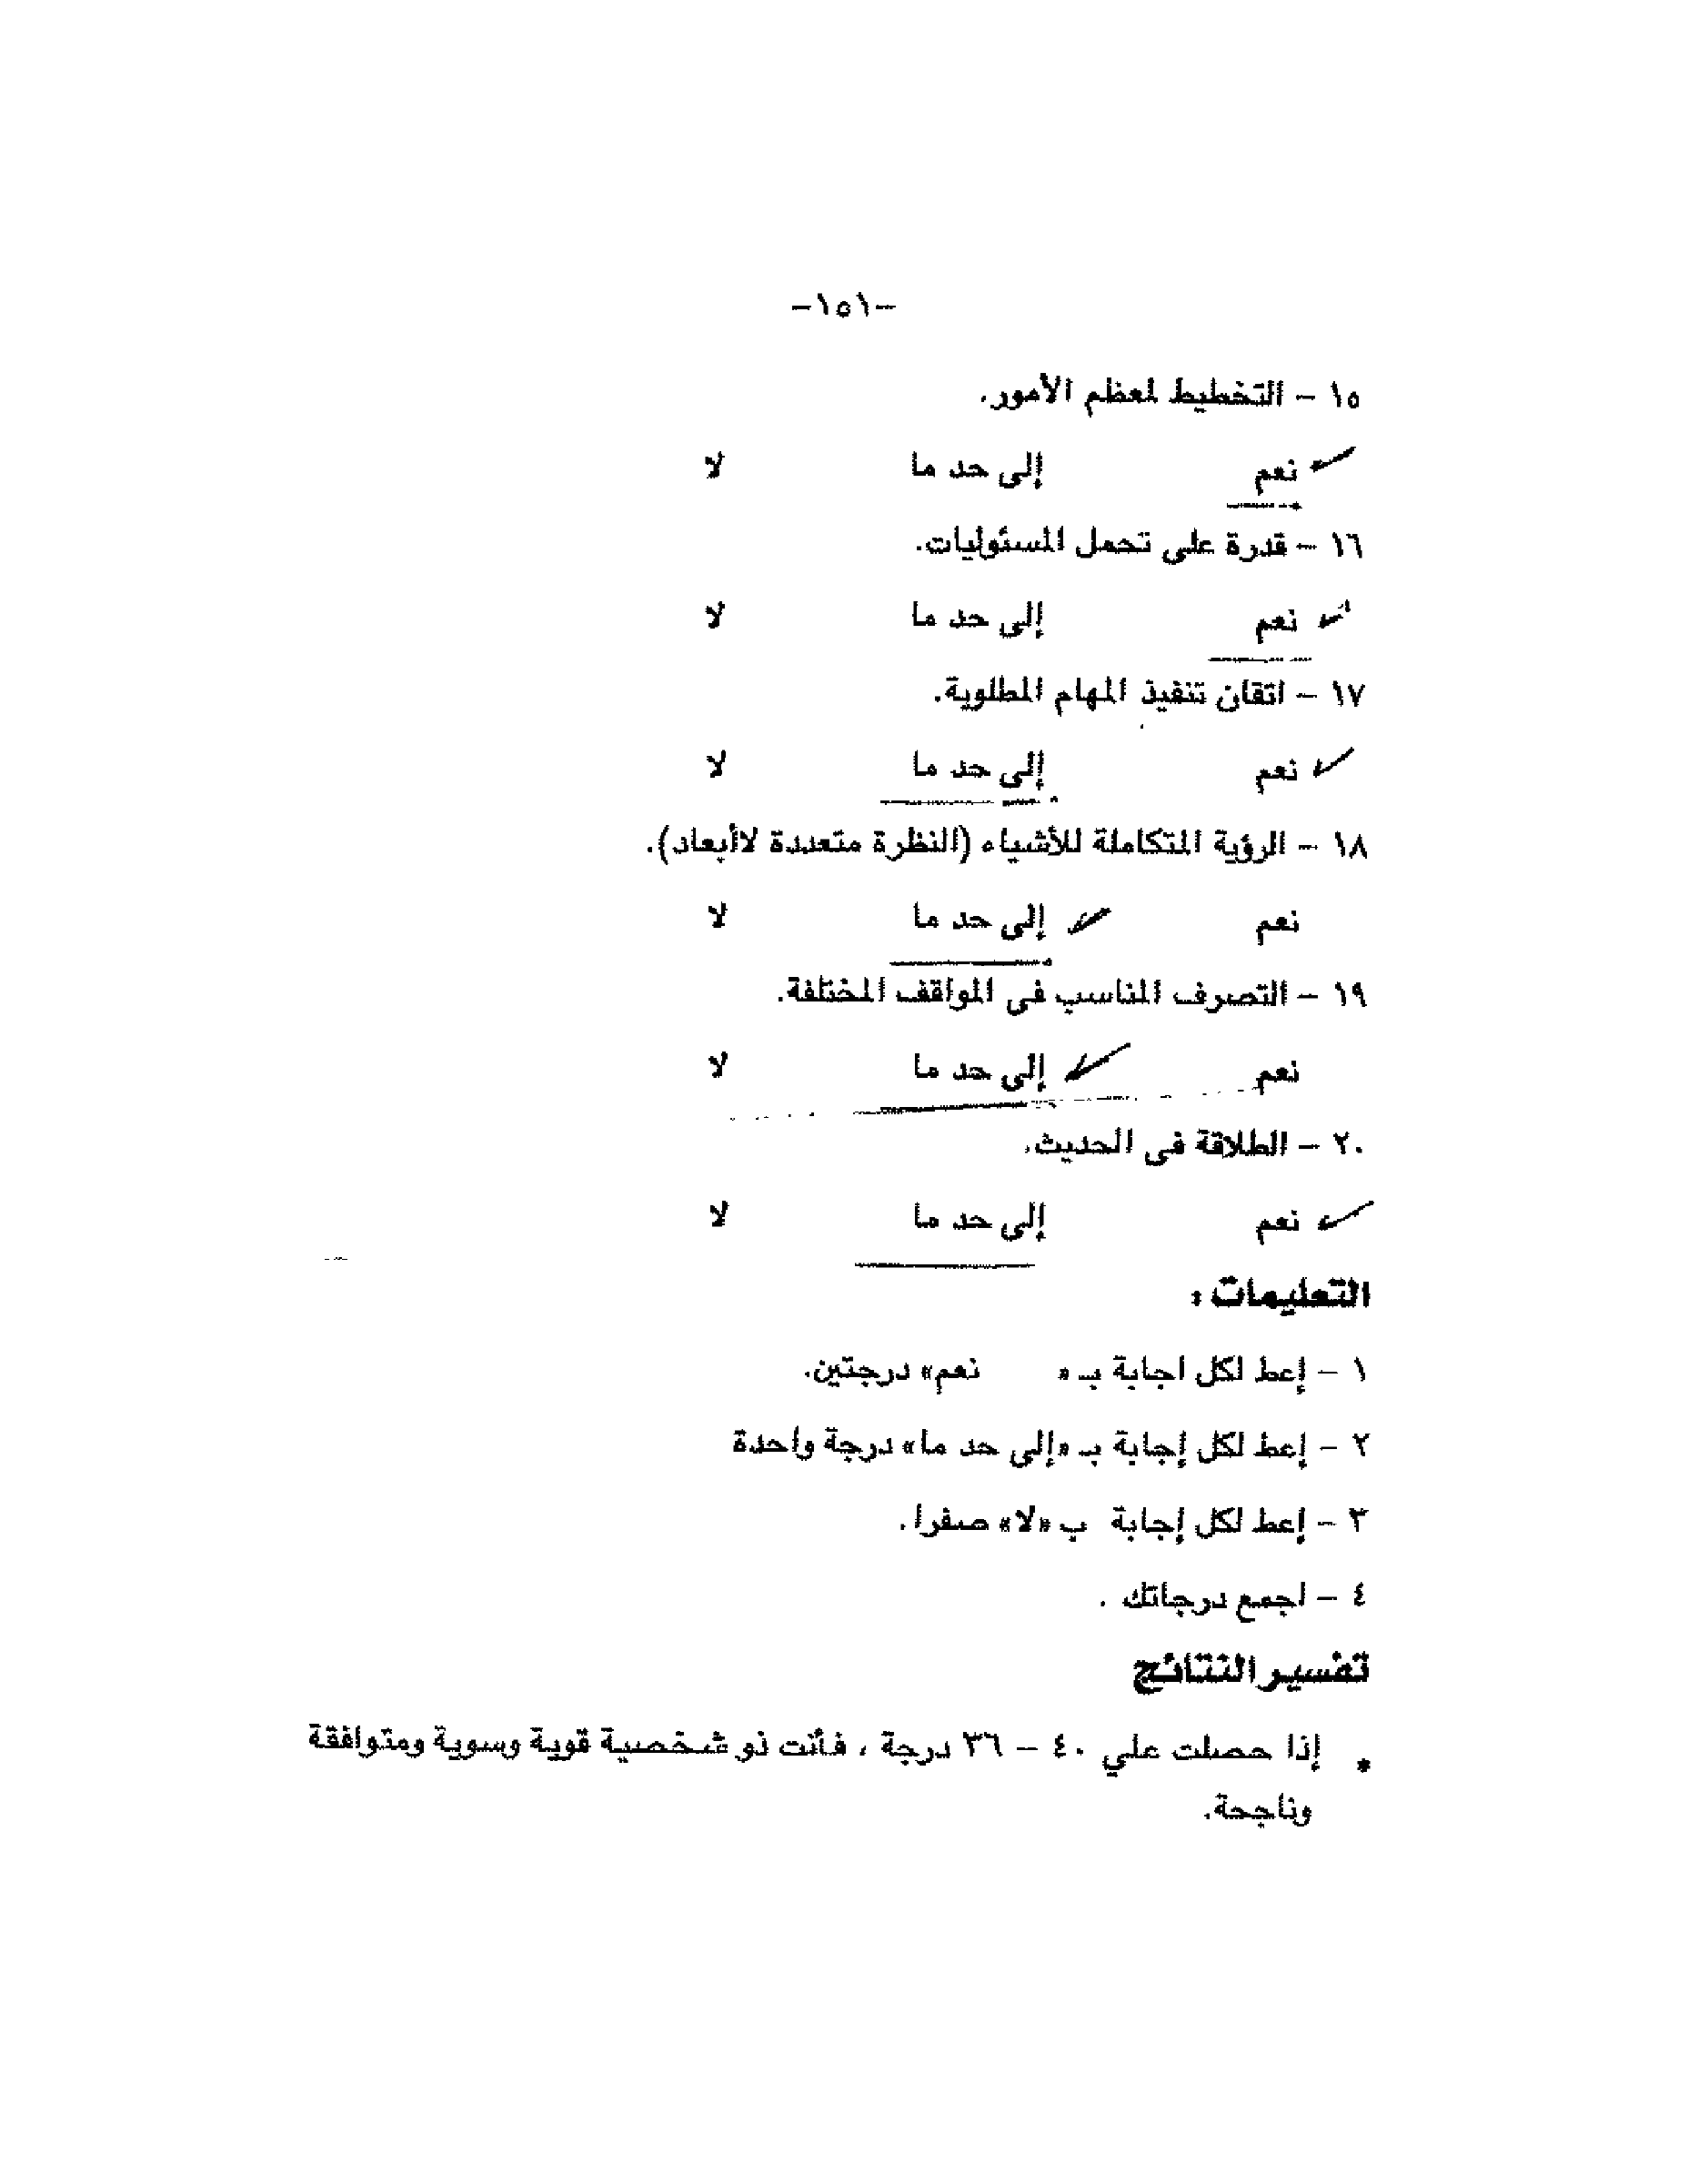 -١٥١-
١٥ - التخطيط لمعظم الأمور.
نعم إلى حد ما لا
١٦ - قدرة على تحمل المسئوليات.
نعم إلى حد ما لا
١٧ - اتقان تنفيذ المهام المطلوبة.
نعم إلى حد ما لا
١٨ - الرؤية المتكاملة للأشياء (النظرة متعددة لاأبعاد).
نعم إلى حد ما لا
١٩ - التصرف المناسب فى المواقف المختلفة.
نعم إلى حد ما لا
٢٠ - الطلاقة فى الحديث.
نعم إلى حد ما لا
التعليمات :
١ - إعط لكل اجابة بـ « نعم» درجتين.
٢ - إعط لكل إجابة بـ «إلى حد ما» درجة واحدة
٣ - إعط لكل إجابة ب «لا» صفرا.
٤ - اجمع درجاتك .
تفسير النتائج
* إذا حصلت علي ٤٠ - ٣٦ درجة ، فأنت ذو شخصية قوية وسوية ومتوافقة
وناجحة.